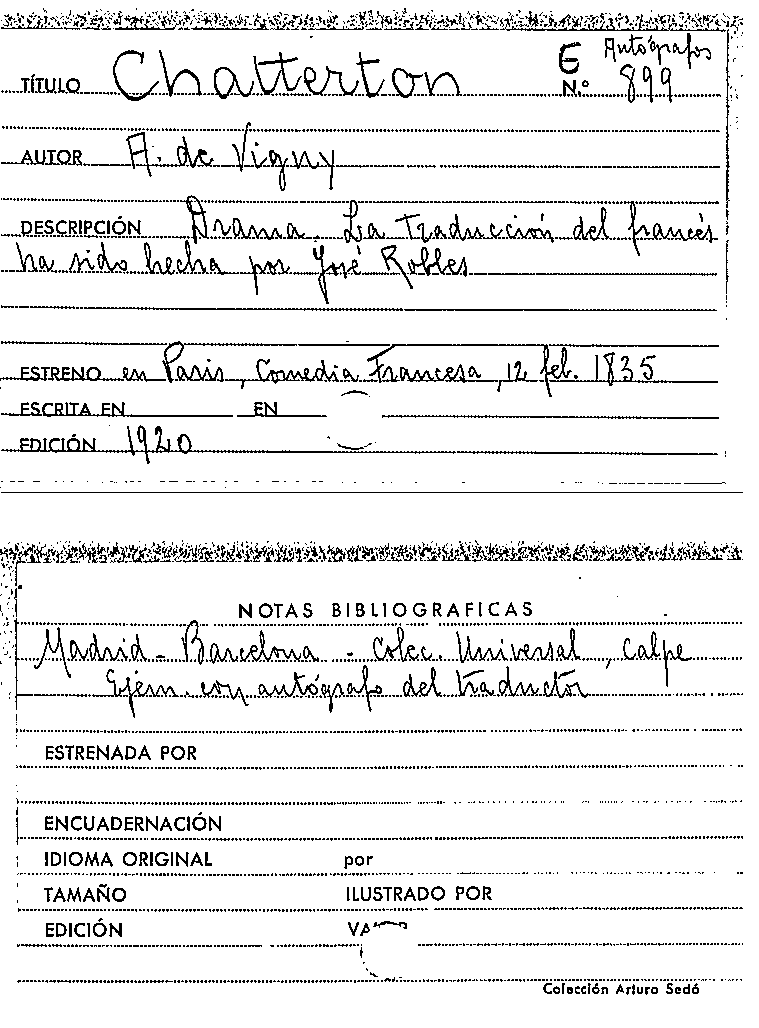 TÍTULO Chatterton E Autógrafos
N.º 899
AUTOR A. de Vigny
DESCRIPCIÓN Drama. La traducción del francés
ha sido hecha por José Robles
ESTRENO en Paris, Comedia Francesa, 12 feb. 1835
ESCRITA EN EN
EDICIÓN 1920
NOTAS BIBLIOGRAFICAS
Madrid - Barcelona - Colec. Universal, Calpe
Ejem. con autógrafo del traductor
ESTRENADA POR
ENCUADERNACIÓN
IDIOMA ORIGINAL por
TAMAÑO ILUSTRADO POR
EDICIÓN
Colección Arturo Sedó